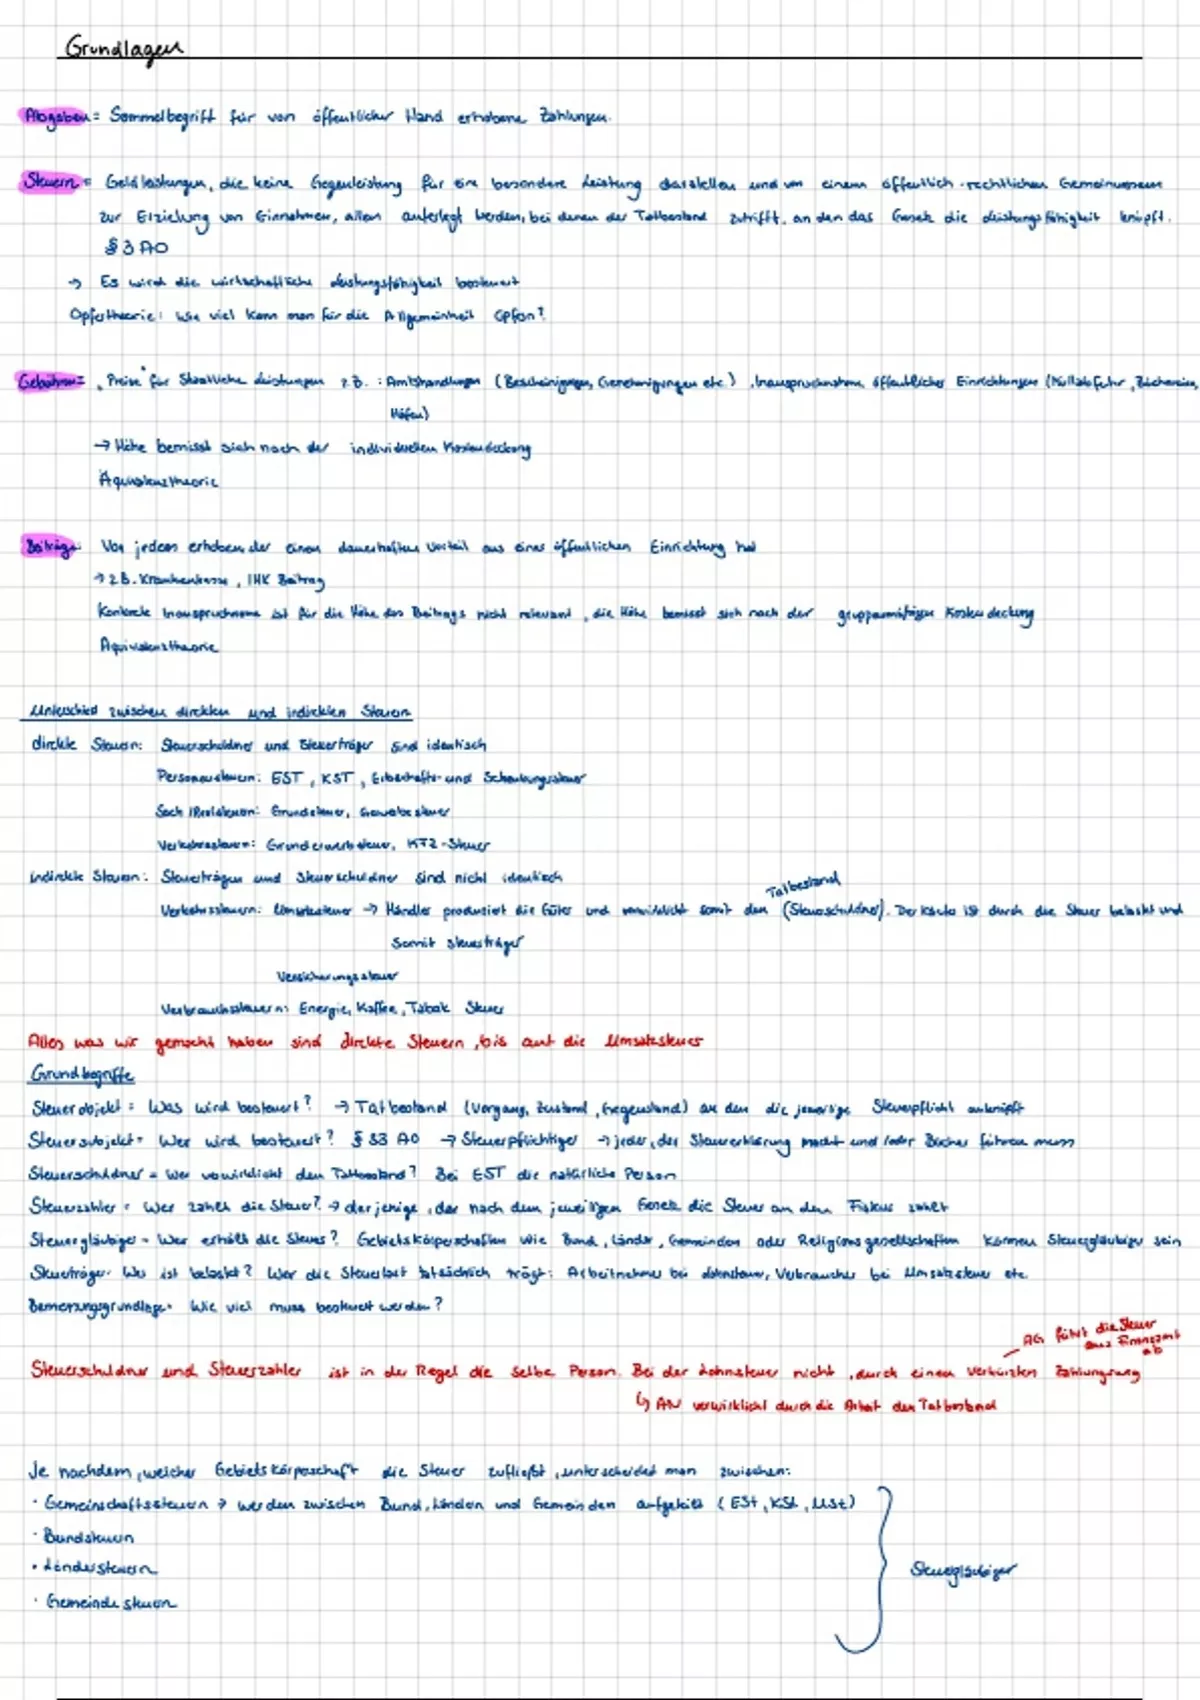 Grundlagen
Abgaben = Sammelbegriff für von öffentlicher Hand erhobene Zahlungen.
Steuern = Geldleistungen, die keine Gegenleistung für eine besondere Leistung darstellen und von einem öffentlich-rechtlichen Gemeinwesen
zur Erzielung von Einnahmen, allen auferlegt werden, bei denen der Tatbestand zutrifft, an den das Gesetz die Leistungsfähigkeit knüpft.
§ 3 AO
→ Es wird die wirtschaftliche Leistungsfähigkeit besteuert
Opfertheorie: Wie viel kann man für die Allgemeinheit opfern?
Gebühren = „Preise" für Staatliche Leistungen z.B. : Amtshandlungen (Bescheinigungen, Genehmigungen etc.), Inanspruchnahme öffentlicher Einrichtungen (Müllabfuhr, Büchereien,
Häfen)
→ Höhe bemisst sich nach der individuellen Kostendeckung
Äquivalenztheorie
Beiträge: Von jedem erhoben, der einen dauerhaften Vorteil aus einer öffentlichen Einrichtung hat
→ z.B. Krankenkasse, IHK Beitrag
Konkrete Inanspruchname ist für die Höhe des Beitrags nicht relevant, die Höhe bemisst sich nach der gruppenmäßigen Kostendeckung
Äquivalenztheorie
Unterschied zwischen direkten und indirekten Steuern
direkte Steuern: Steuerschuldner und Steuerträger sind identisch
Personensteuern: EST, KST, Erbschafts- und Schenkungssteuer
Sach-/Realsteuern: Grundsteuer, Gewerbesteuer
Verkehrssteuern: Grunderwerbsteuer, KFZ-Steuer
indirekte Steuern: Steuerträger und Steuerschuldner sind nicht identisch
Tatbestand
Verkehrssteuern: Umsatzsteuer → Händler produziert die Güter und verwirklicht somit den (Steuerschuldner). Der Käufer ist durch die Steuer belastet und
somit steuerträger
Versicherungssteuer
Verbrauchssteuern: Energie, Kaffee, Tabak Steuer
Alles was wir gemacht haben sind direkte Steuern, bis auf die Umsatzsteuer
Grundbegriffe
Steuerobjekt = Was wird besteuert? → Tatbestand (Vorgang, Zustand, Gegenstand) an den die jeweilige Steuerpflicht anknüpft
Steuersubjekt = Wer wird besteuert? § 33 AO → Steuerpflichtiger → jeder, der Steuererklärung macht und/oder Bücher führen muss
Steuerschuldner = Wer verwirklicht den Tatbestand? Bei EST die natürliche Person
Steuerzahler = Wer zahlt die Steuer? → derjenige, der nach dem jeweiligen Gesetz die Steuer an den Fiskus zahlt
Steuergläubiger = Wer erhält die Steuer? Gebietskörperschaften wie Bund, Länder, Gemeinden oder Religionsgesellschaften können Steuergläubiger sein
Steuerträger = Wer ist belastet? Wer die Steuerlast tatsächlich trägt: Arbeitnehmer bei Lohnsteuer, Verbraucher bei Umsatzsteuer etc.
Bemessungsgrundlage = Wie viel muss besteuert werden?
AG führt die Steuer
ans Finanzamt
ab
Steuerschuldner und Steuerzahler ist in der Regel die selbe Person. Bei der Lohnsteuer nicht, durch einen verkürzten Zahlungsweg
↳ AN verwirklicht durch die Arbeit den Tatbestand
Je nachdem, welcher Gebietskörperschaft die Steuer zufließt, unterscheidet man zwischen:
· Gemeinschaftssteuern → werden zwischen Bund, Ländern und Gemeinden aufgeteilt (ESt, KSt, USt)
· Bundsteuern
· Ländersteuern
· Gemeindesteuern
Steuergläubiger